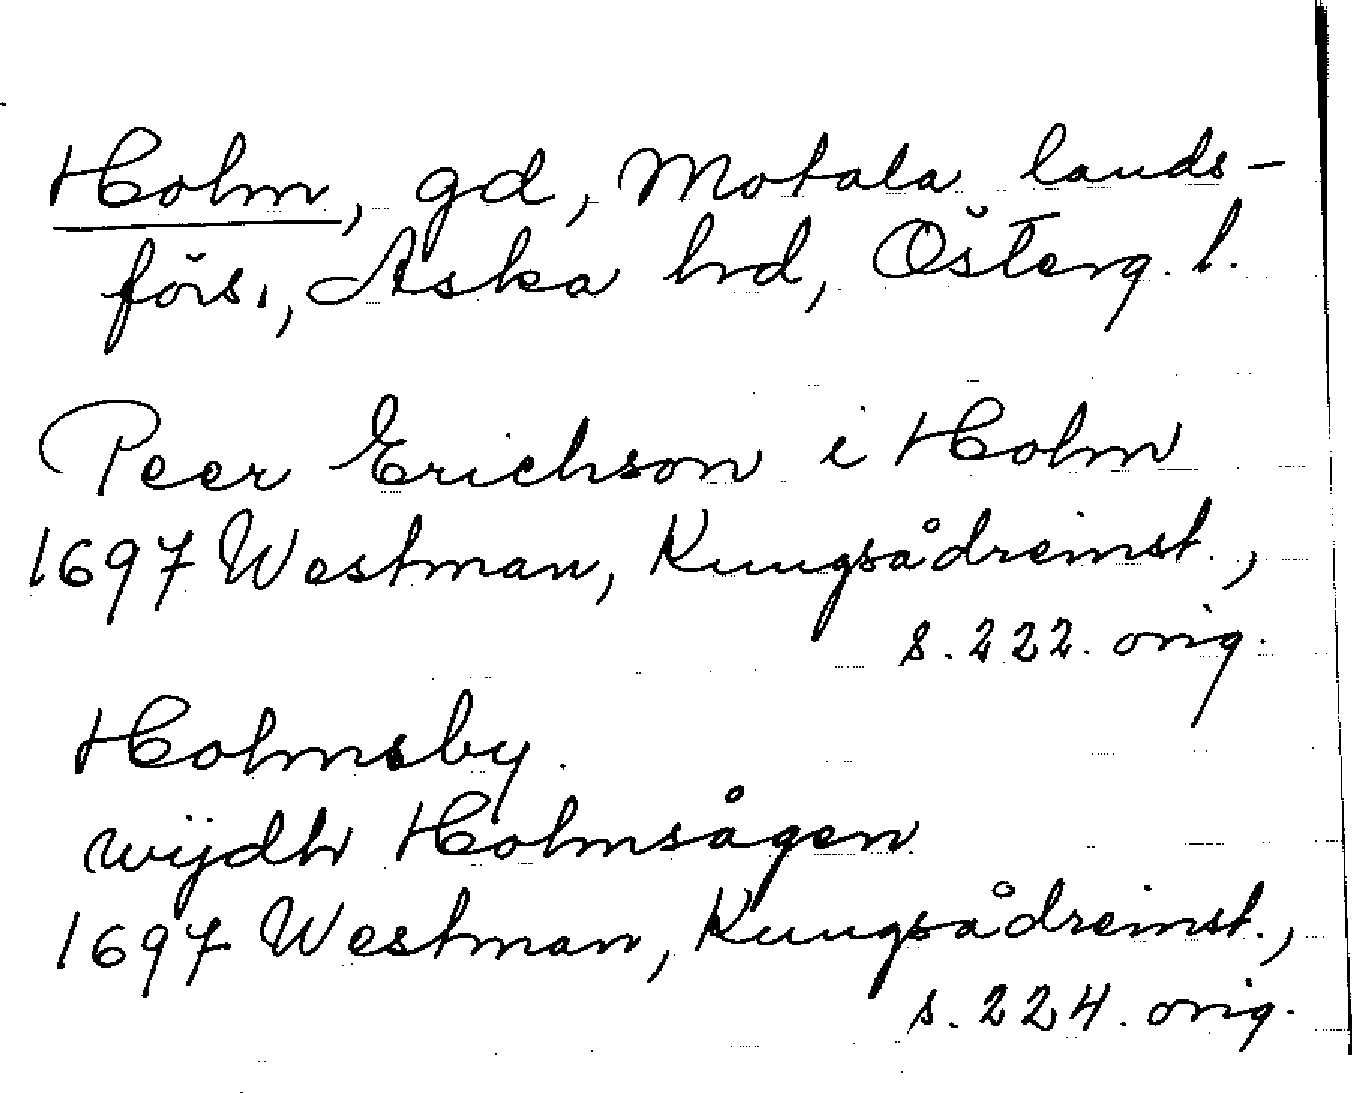 Holm, gd, Motala lands-
förs., Aska hd, Österg. l.
Peer Erichson i Holm
1697 Westman, Kungsådreinst.,
s. 222. orig.
Holmsby
wijdh Holmsågen
1697 Westman, Kungsådreinst.,
s. 224. orig.